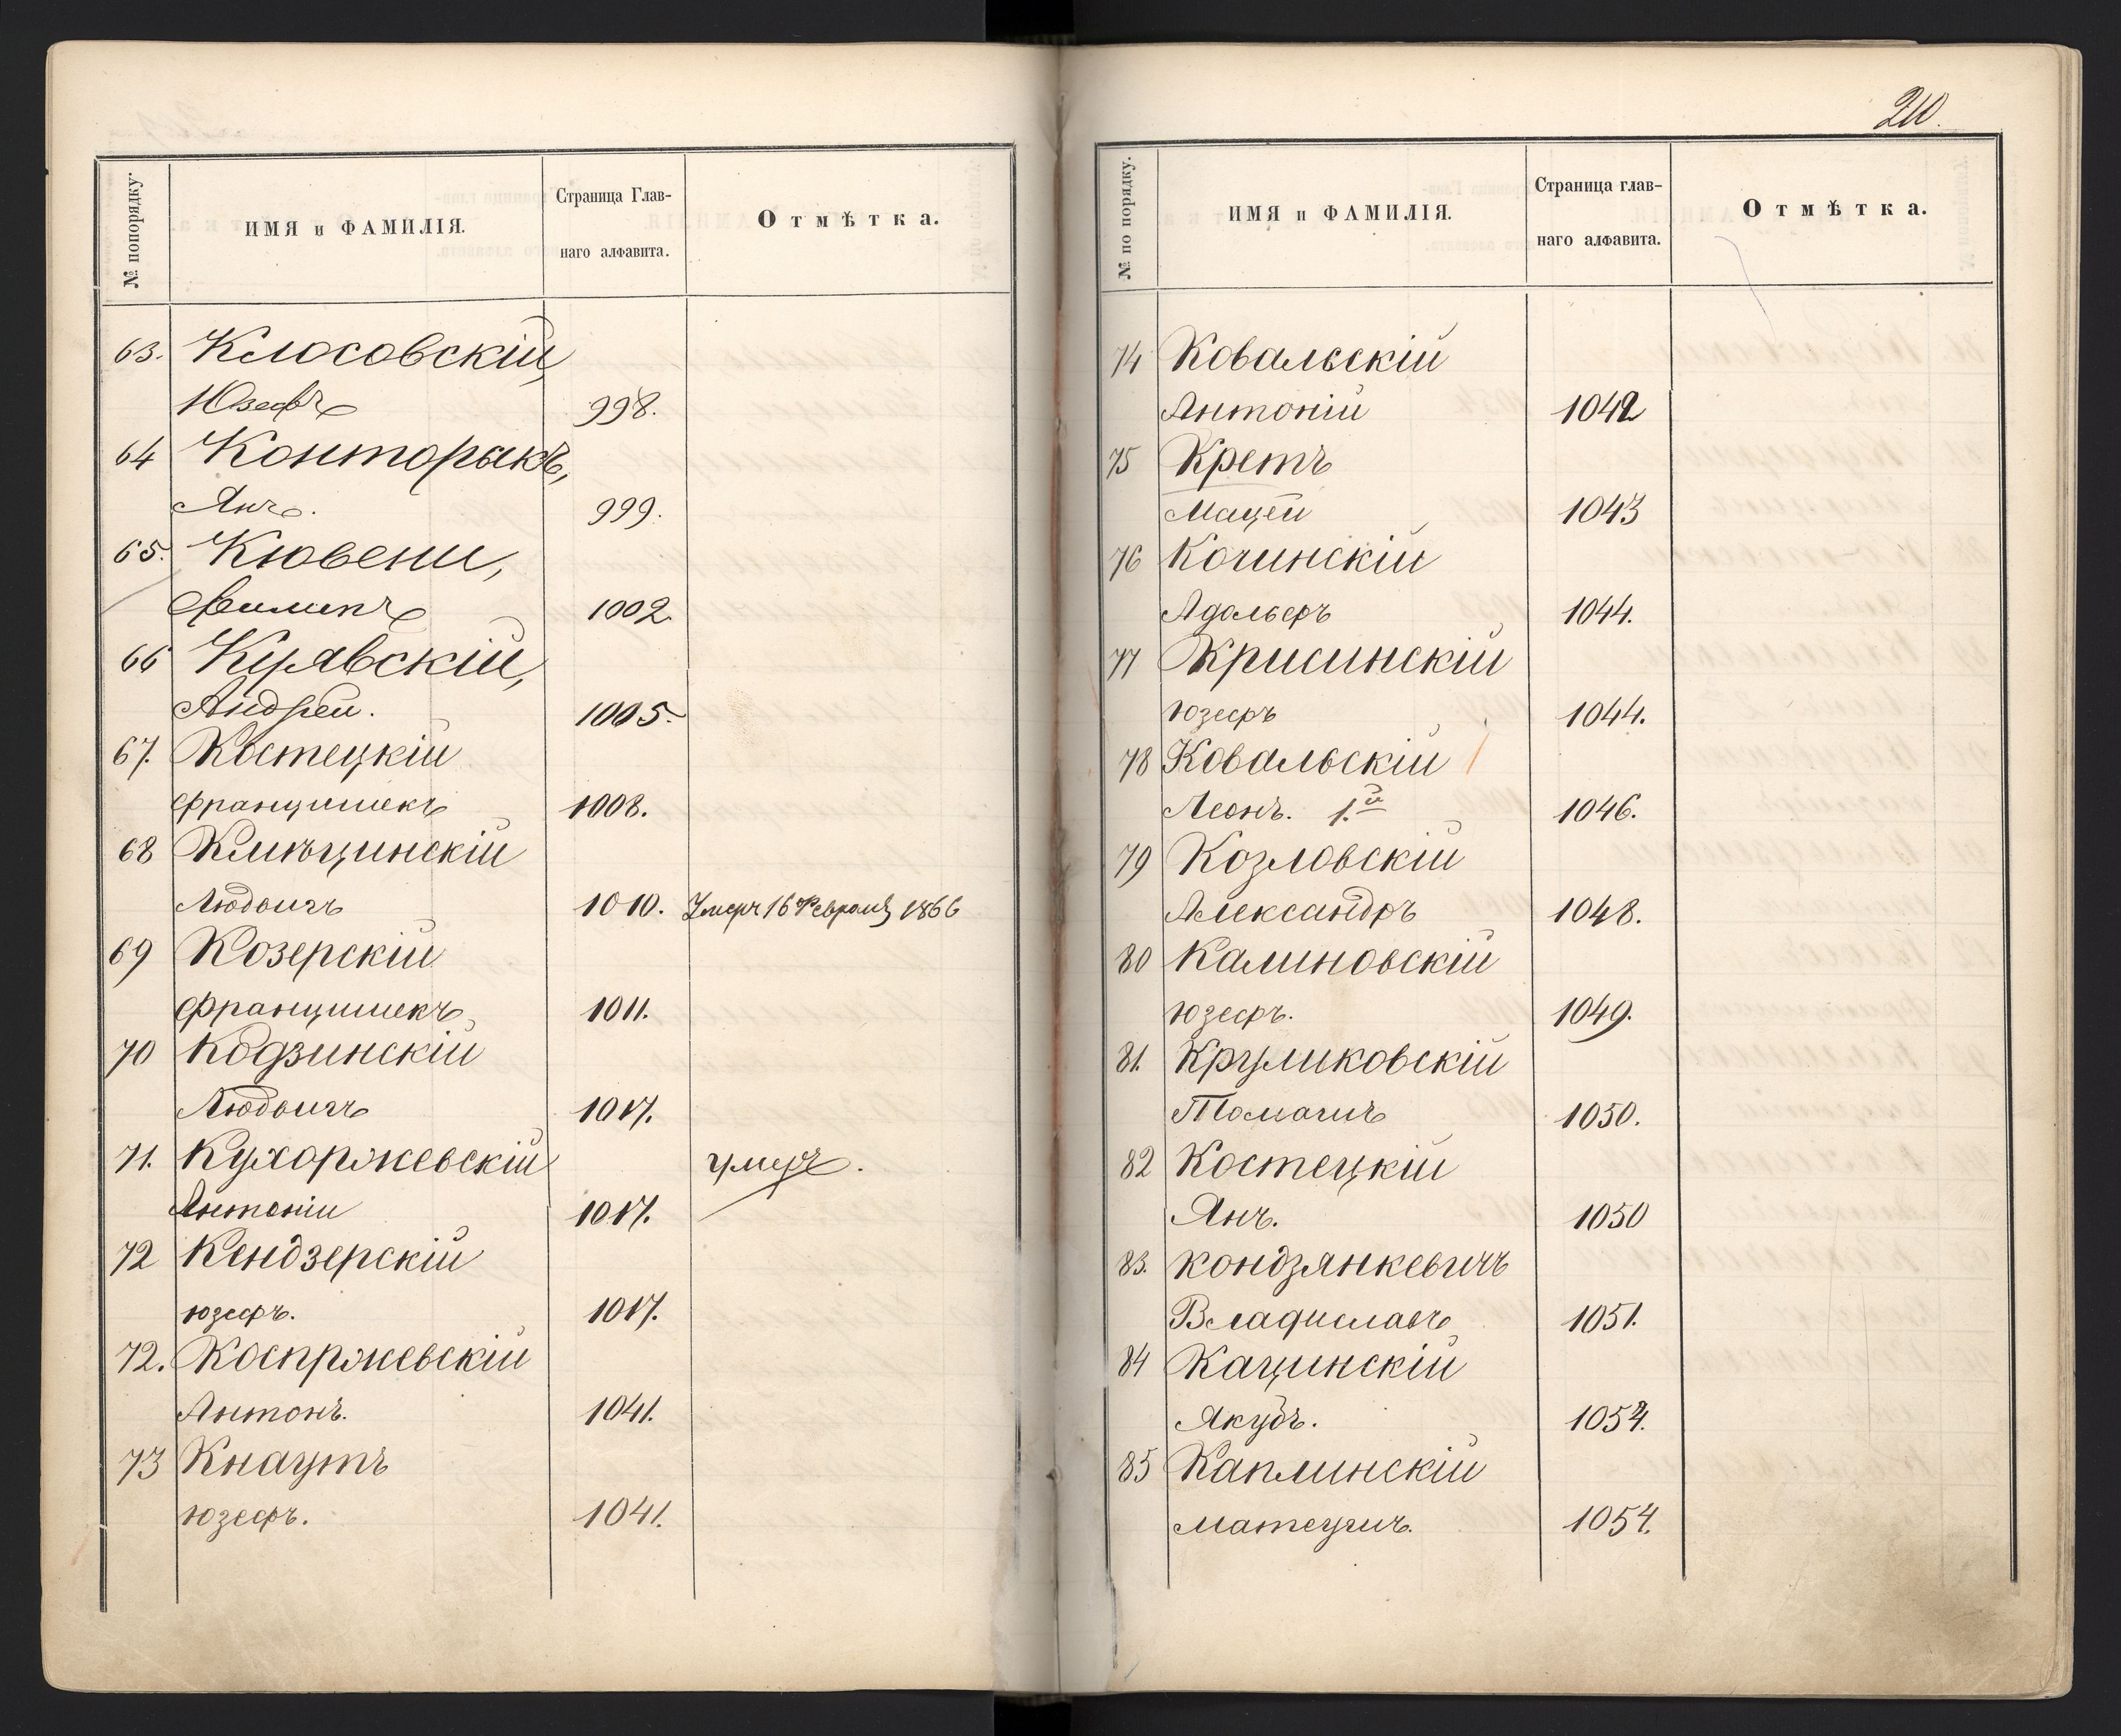 № попорядку.
ИМЯ и ФАМИЛІЯ.
Страница Глав-
наго алфавита.
Отмѣтка.
63. Клосовскій,
Юзефъ 998.
64 Конторыкъ,
Янъ. 999.
65. Кювени,
Филипъ 1002.
66 Куявскій,
Андрей. 1005.
67. Костецкій
Францишекъ 1008.
68 Клюцинскій
Людвигъ 1010. Умеръ 16 Февраля 1866
69 Козерскій
Францишекъ 1011.
70 Кодзинскій
Людвигъ 1017.
71. Кухоржевскій умеръ.
Антоній 1017.
72 Кендзерскій
Юзефъ. 1017.
72. Коспржевскій
Антонъ. 1041.
73 Кнаутъ
Юзефъ. 1041.
210.
№ по порядку.
ИМЯ и ФАМИЛІЯ.
Страница глав-
наго алфавита.
Отмѣтка.
74 Ковальскій
Антоній 1042
75 Кретъ
Мацей 1043
76 Кочинскій
Адольфъ 1044.
77 Крисинскій
Юзефъ 1044.
78 Ковальскій
Леонъ. 1.й 1046.
79 Козловскій
Александръ 1048.
80 Калиновскій
Юзефъ. 1049.
81. Круликовскій
Томашъ 1050.
82 Костецкій
Янъ. 1050
83. Кондзянкевичъ
Владиславъ 1051.
84 Кацинскій
Якубъ. 1054.
85 Каплинскій
Матеушъ. 1054.